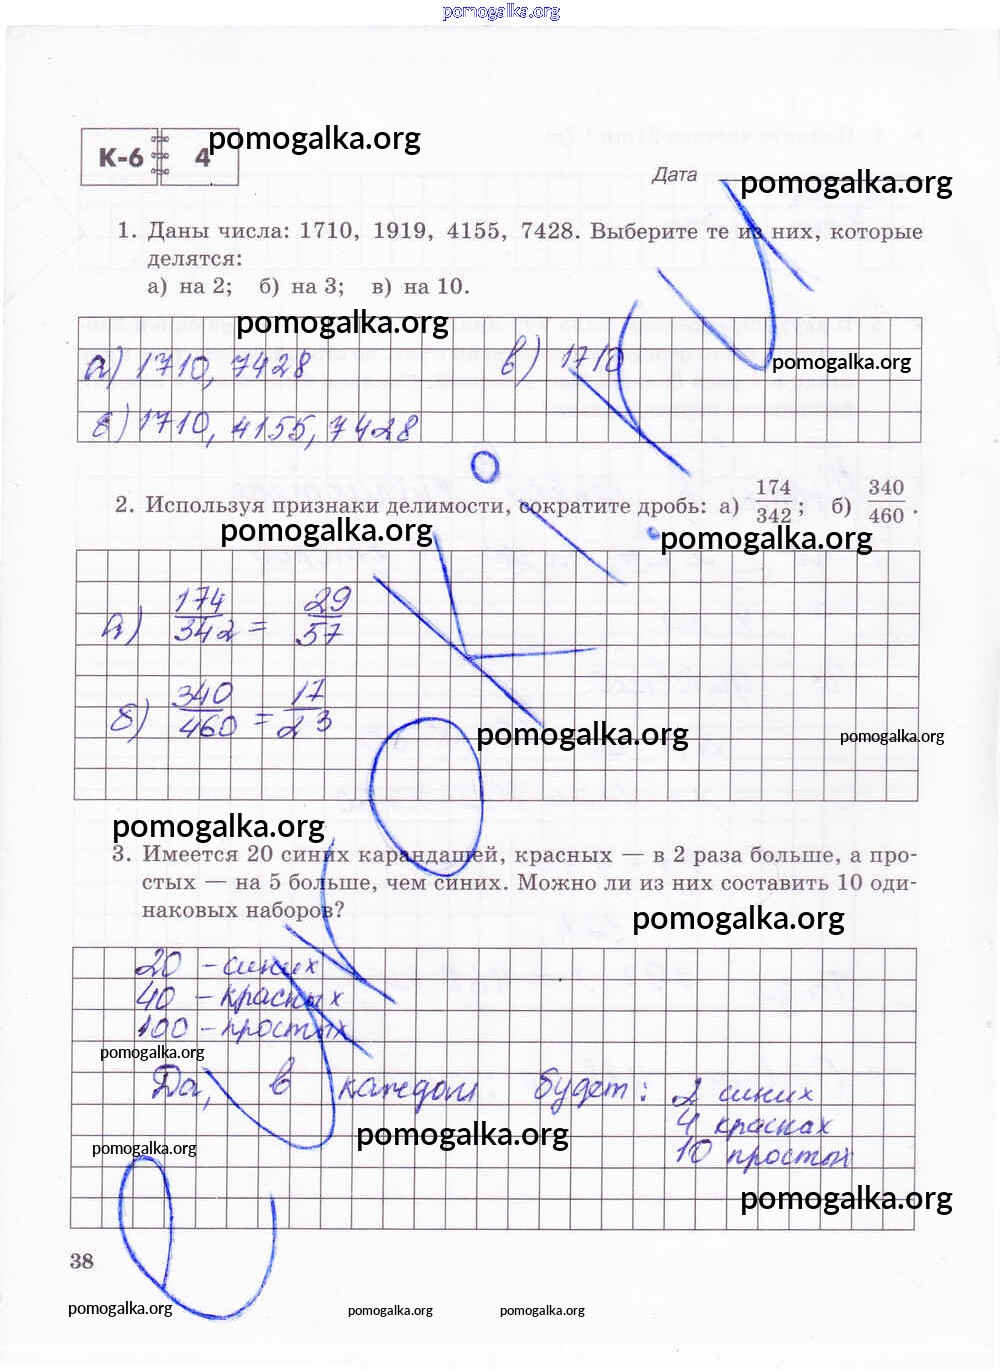 pomogalka.org
К-6 4 pomogalka.org
Дата pomogalka.org
1. Даны числа: 1710, 1919, 4155, 7428. Выберите те из них, которые
делятся:
а) на 2; б) на 3; в) на 10.
pomogalka.org
а) 1710, 7428 в) 1710 pomogalka.org
б) 1710, 4155, 7428
2. Используя признаки делимости, сократите дробь: а) 174/342; б) 340/460.
pomogalka.org pomogalka.org
а) 174/342 = 29/57
б) 340/460 = 17/23
pomogalka.org pomogalka.org
pomogalka.org
3. Имеется 20 синих карандашей, красных — в 2 раза больше, а про-
стых — на 5 больше, чем синих. Можно ли из них составить 10 оди-
наковых наборов?
pomogalka.org
20 - синих
40 - красных
100 - простых
pomogalka.org
Да, в каждом будет: 2 синих
4 красных
pomogalka.org
pomogalka.org 10 простых
pomogalka.org
38
pomogalka.org pomogalka.org pomogalka.org